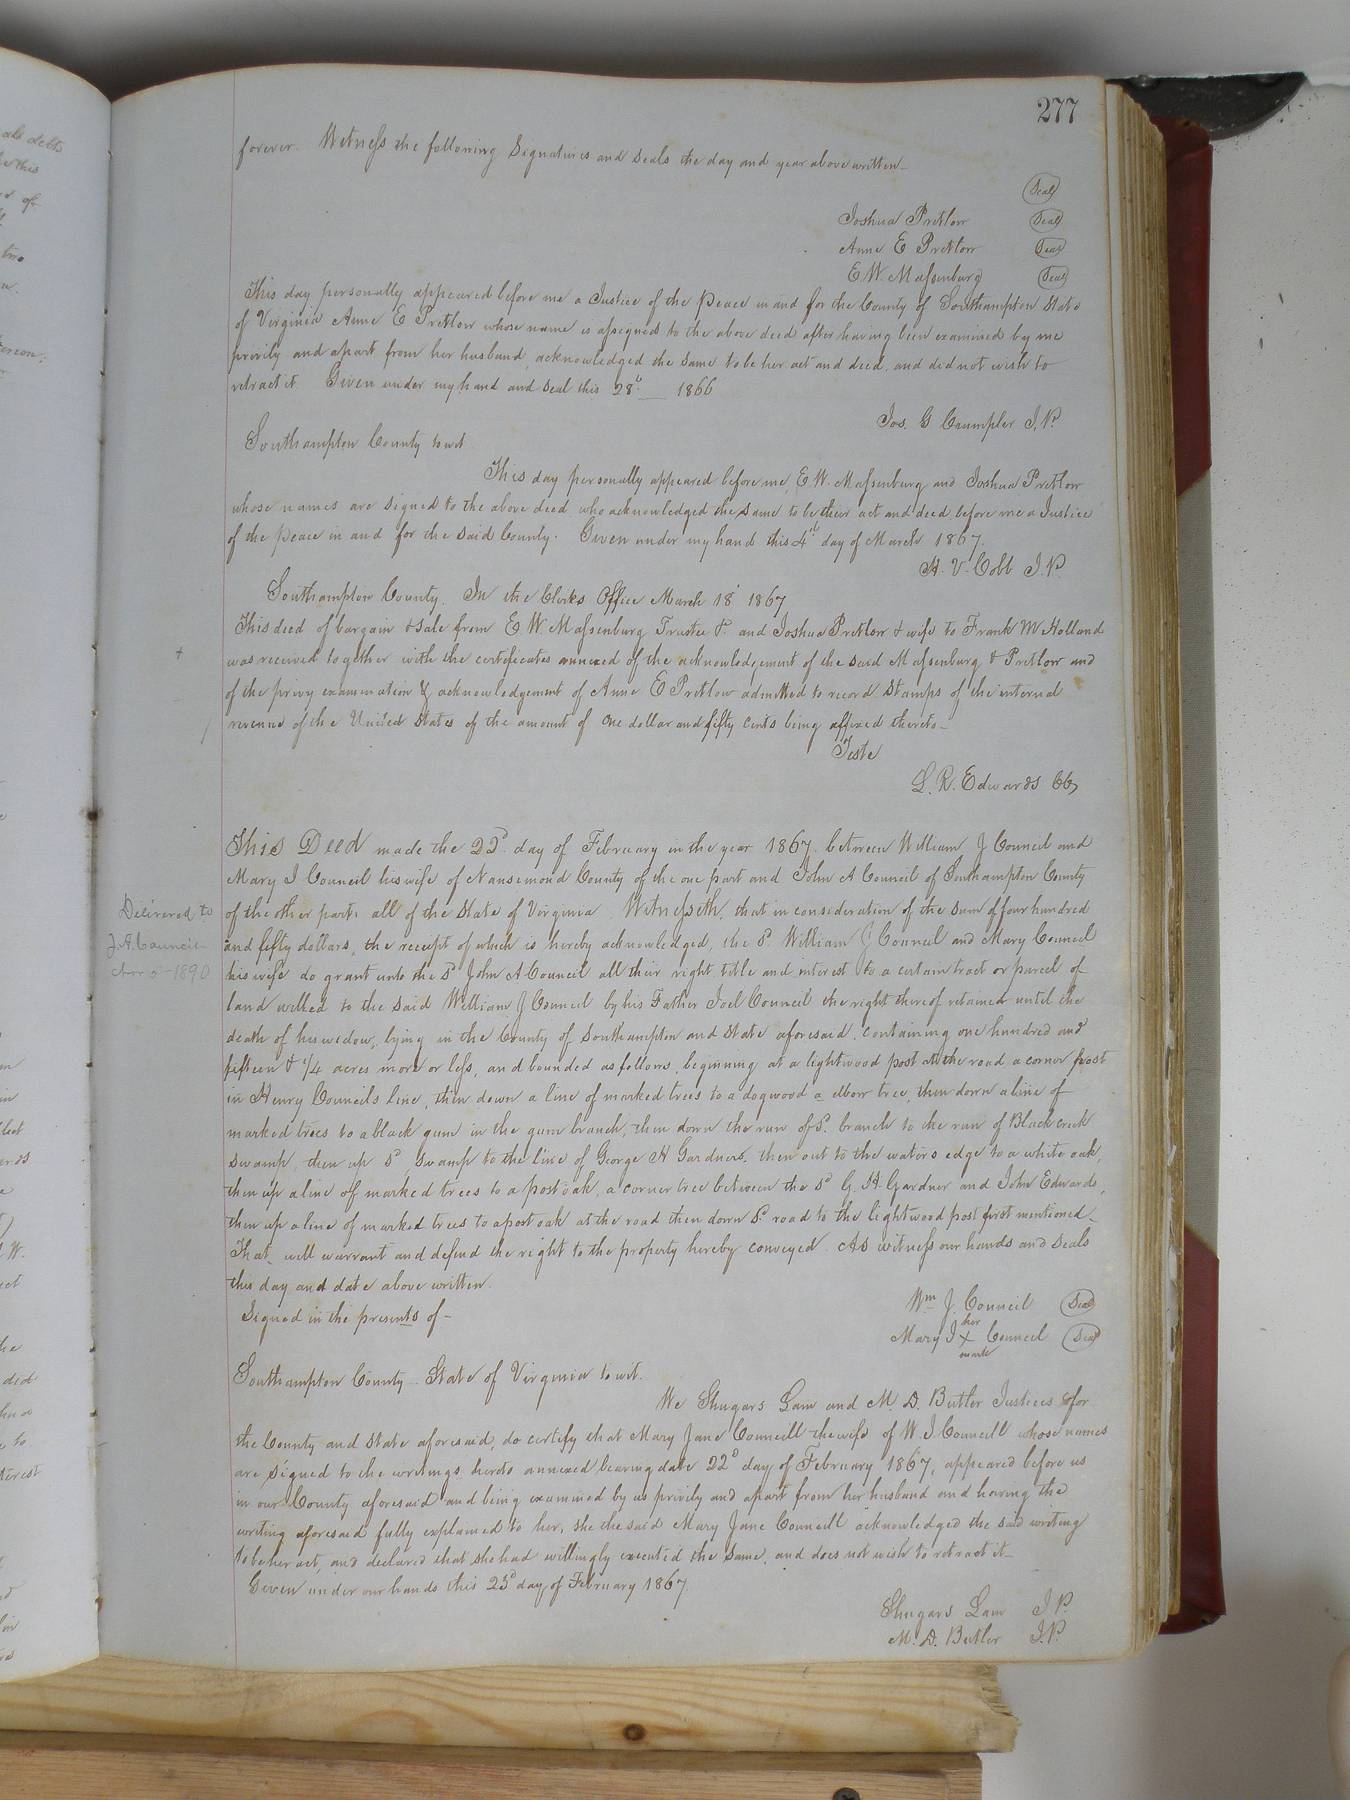 277
forever. Witness the following Signatures and Seals the day and year above written
Seal
Joshua Pretlow Seal
Anne E Pretlow Seal
E. W. Massenburg Seal
This day personally appeared before me a Justice of the Peace in and for the County of Southampton State
of Virginia Anne E Pretlow whose name is assigned to the above deed after having been examined by me
privily and apart from her husband, acknowledged the same to be her act and deed, and did not wish to
retract it. Given under my hand and seal this 28th ___ 1866
Jos. G Crumpler J.P.
Southampton County to wit.
This day personally appeared before me, E. W. Massenburg and Joshua Pretlow
whose names are signed to the above deed who acknowledged the same to be their act and deed before me a Justice
of the peace in and for the said County. Given under my hand this 4th day of March 1867.
A. V. Cobb J.P.
Southampton County. In the Clerks Office March 18 1867
This deed of bargain & sale from E W. Massenburg Trustee &. and Joshua Pretlow & wife to Frank M Holland
was received together with the certificates annexed of the acknowledgement of the said Massenburg & Pretlow and
of the privy examination & acknowledgement of Anne E Pretlow admitted to record Stamps of the internal
revenue of the United States of the amount of One dollar and fifty cents being affixed thereto
Teste
L. R. Edwards CC
This Deed made the 22d day of February in the year 1867, between William J Council and
Mary J Council his wife of Nansemond County of the one part and John A Council of Southampton County
Delivered to
J. A. Council
5-1890
of the other part, all of the State of Virginia Witnesseth, that in consideration of the sum of four hundred
and fifty dollars, the receipt of which is hereby acknowledged, the Sd William J Council and Mary Council
his wife do grant unto the Sd John A Council all their right title and interest to a certain tract or parcel of
land willed to the said William J Council by his Father Joel Council the right thereof retained until the
death of his widow, lying in the County of Southampton and State aforesaid, containing one hundred and
fifteen & 1/4 acres more or less, and bounded as follows, beginning at a lightwood post at the road a corner post
in Henry Councils line, then down a line of marked trees to a dogwood a elbow tree, then down a line of
marked trees to a black gum in the gum branch, then down the run of Sd branch to the run of Black creek
Swamp, then up Sd Swamp to the line of George H Gardners, then out to the waters edge to a white oak,
then up a line of marked trees to a post oak, a corner tree between the Sd G. H. Gardner and John Edwards,
then up a line of marked trees to a post oak at the road then down Sd road to the lightwood post first mentioned
That, will warrant and defend the right to the property hereby conveyed. As witness our hands and seals
this day and date above written.
Signed in the presents of
Wm J. Council Seal
her
Mary J X Council Seal
mark
Southampton County State of Virginia to wit.
We Shugars Lain and M. D. Butler Justices for
the County and State aforesaid, do certify that Mary Jane Councill the wife of W. J. Councill whose names
are signed to the writings hereto annexed bearing date 22d day of February 1867, appeared before us
in our County aforesaid and being examined by us privily and apart from her husband and having the
writing aforesaid fully explained to her, she the said Mary Jane Councill acknowledged the said writing
to be her act, and declared that she had willingly executed the same, and does not wish to retract it
Given under our hands this 23d day of February 1867.
Shugars Lain J.P.
M. D. Butler J.P.